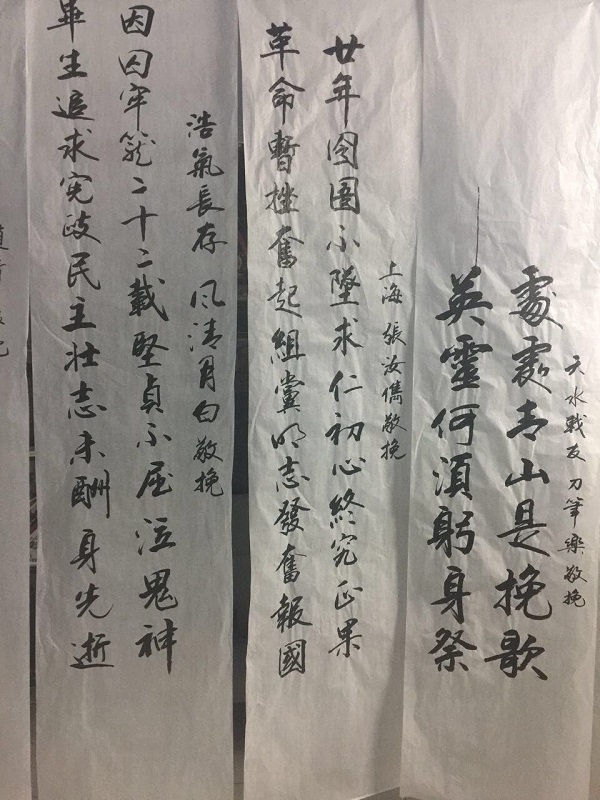 天水戰友 刀筆樂敬挽
處處青山是挽歌
英靈何須躬身祭
上海 張汝儁敬挽
廿年囹圄不墜求仁初心終究正果
革命暫挫奮起組黨明志發奮報國
浩氣長存 风清月白敬挽
因囚牢籠二十二載堅貞不屈泣鬼神
畢生追求宪政民主壯志未酬身先逝